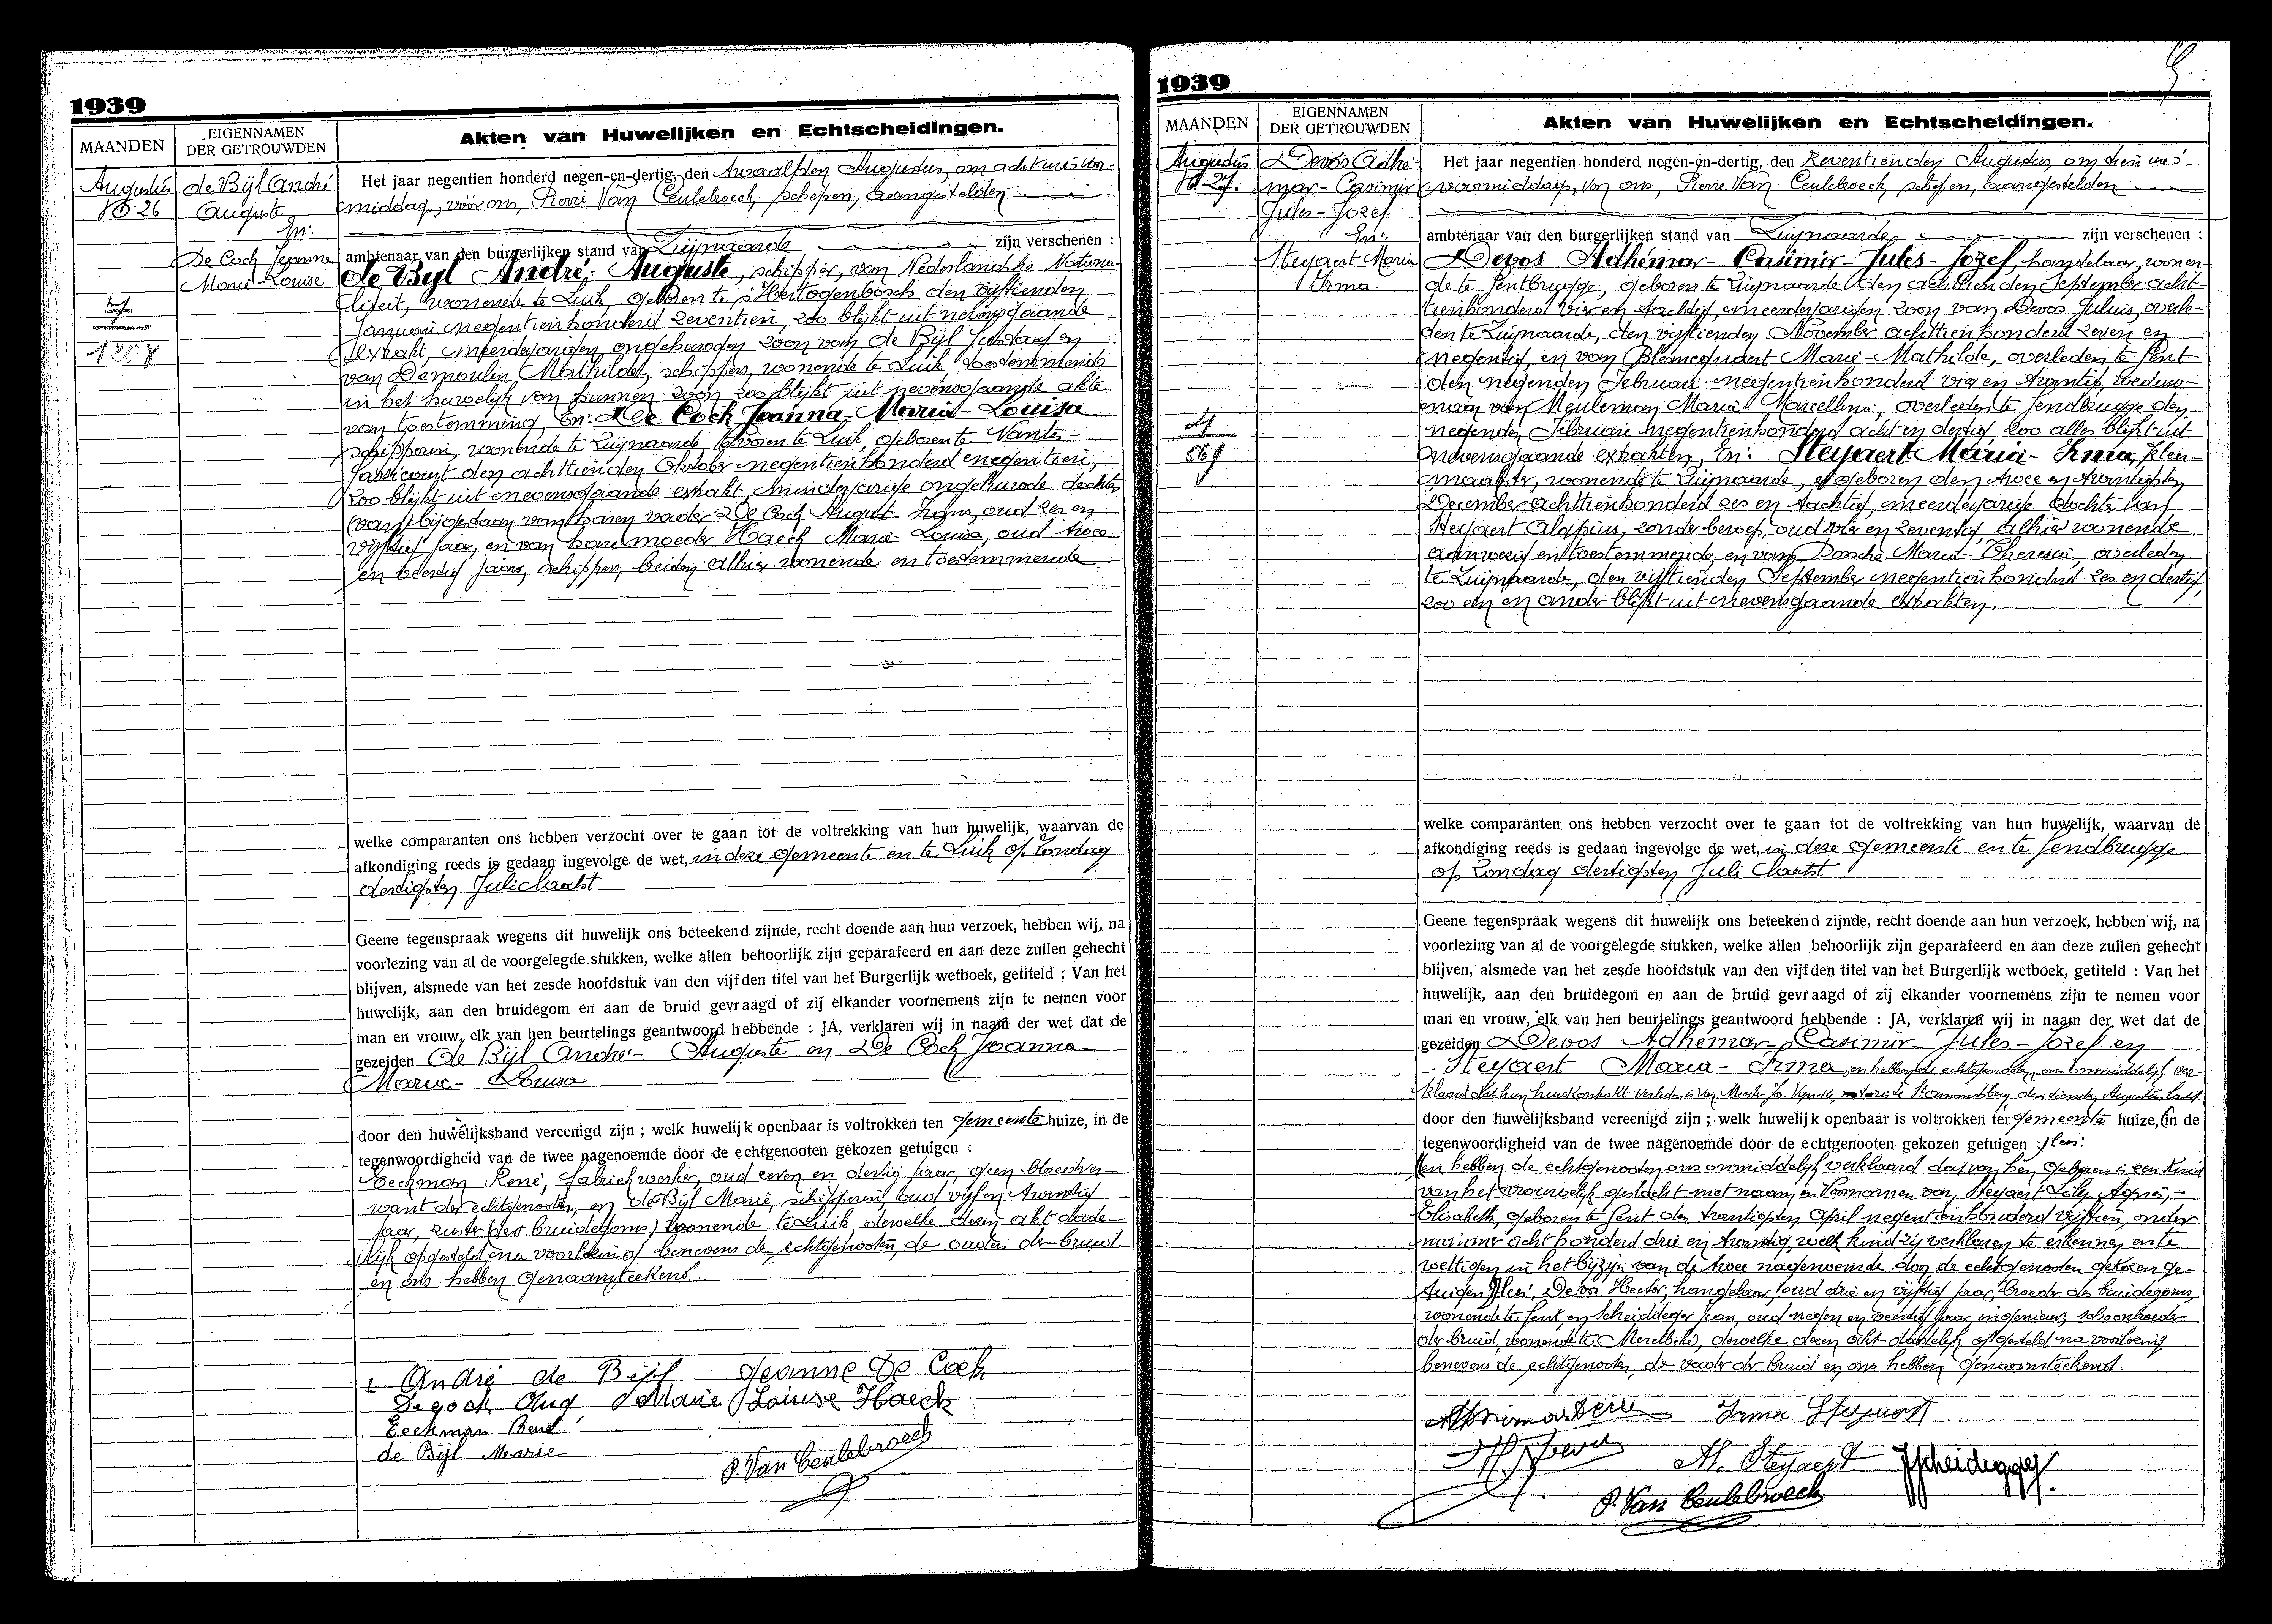 1939
MAANDEN
EIGENNAMEN
DER GETROUWDEN
Akten van Huwelijken en Echtscheidingen.
Augustus
No 26
de Bijl André
Auguste
En:
De Cock Jeanne
Marie-Louise
1208
Het jaar negentien honderd negen-en-dertig, den twaalfden Augustus, om acht ure voor-
middag, vóór ons, Pierre Van Ceulebroeck, schepen, aangestelden
ambtenaar van den burgerlijken stand van Zwijnaarde zijn verschenen :
de Bijl André-Auguste, schipper, van Nederlandsche Nationa-
liteit, wonende te Luik, geboren te s'Hertogenbosch den vijftienden
Januari negentienhonderd zeventien, zoo blijkt uit nevensgaande
extrakt, meerderjarigen ongehuwden zoon van de Bijl Gustaaf en
van Demoulin Mathilde, schippers, wonende te Luik, toestemmende
in het huwelijk van hunnen zoon zoo blijkt uit nevensgaande akte
van toestemming, En: De Cock Joanna-Maria-Louisa
schipperin, wonende te Zwijnaarde, tevoren te Luik, geboren te Nantes-
den achttienden Oktober negentienhonderd negentien,
zoo blijkt uit nevensgaande extrakt, minderjarige ongehuwde dochter
(van) bijgestaan van haren vader De Cock August-Frans, oud zes en
vijftig jaar, en van hare moeder Haeck Marie-Louisa, oud twee
en veertig jaar, schippers, beiden alhier wonende en toestemmende
welke comparanten ons hebben verzocht over te gaan tot de voltrekking van hun huwelijk, waarvan de
afkondiging reeds is gedaan ingevolge de wet, in deze gemeente en te Luik op Zondag
dertigsten Juli laatst
Geene tegenspraak wegens dit huwelijk ons beteekend zijnde, recht doende aan hun verzoek, hebben wij, na
voorlezing van al de voorgelegde stukken, welke allen behoorlijk zijn geparafeerd en aan deze zullen gehecht
blijven, alsmede van het zesde hoofdstuk van den vijfden titel van het Burgerlijk wetboek, getiteld : Van het
huwelijk, aan den bruidegom en aan de bruid gevraagd of zij elkander voornemens zijn te nemen voor
man en vrouw, elk van hen beurtelings geantwoord hebbende : JA, verklaren wij in naam der wet dat de
gezeiden de Bijl André-Auguste en De Cock Joanna-
Maria-Louisa
door den huwelijksband vereenigd zijn ; welk huwelijk openbaar is voltrokken ten gemeente huize, in de
tegenwoordigheid van de twee nagenoemde door de echtgenooten gekozen getuigen :
Eeckman René, fabriekwerker, oud zeven en dertig jaar, geen bloedver-
want der echtgenooten, en de Bijl Marie, schipperin, oud vijf en twintig
jaar, zuster (des bruidegoms) wonende te Luik, dewelke dezen akt dade-
lijk opgesteld na voorlezing benevens de echtgenooten, de ouders der bruid
en ons hebben genaamteekend.
André de Bijl Jeanne De Cock
De Cock Aug Marie Louise Haeck
Eeckman René
de Bijl Marie
P. Van Ceulebroeck
1939
MAANDEN
EIGENNAMEN
DER GETROUWDEN
Akten van Huwelijken en Echtscheidingen.
Augustus
No 27.
Devos Adhé-
mar-Casimir
Jules-Jozef.
En:
Steyaert Maria
Irma.
4
569
Het jaar negentien honderd negen-en-dertig, den Zeventienden Augustus, om tien ure
voormiddag, voor ons, Pierre Van Ceulebroeck, schepen, aangestelden
ambtenaar van den burgerlijken stand van Zwijnaarde zijn verschenen :
Devos Adhémar-Casimir-Jules-Jozef, handelaar, wonen-
de te Gentbrugge, geboren te Zwijnaarde den achttienden September acht-
tienhonderd vier en tachtig, meerderjarigen zoon van Devos Julius, overle-
den te Zwijnaarde, den vijftienden November achttienhonderd zeven en
negentig, en van Blancquaert Marie-Mathilde, overleden te Gent
den negenden Februari negentienhonderd vier en twintig, weduw-
naar van Meuleman Maria-Marcellina, overleden te Gendbrugge den
negenden Februari negentienhonderd acht en dertig zoo alles blijkt uit
nevensgaande extrakten, En: Steyaert Maria-Irma, kleer-
maakster, wonende te Zwijnaarde, er geboren den twee en twintigsten
December achttienhonderd zes en tachtig, meerderjarige dochter van
Steyaert Aloysius, zonder beroep, oud vier en zeventig, alhier wonende
aanwezig en toestemmende, en van Dossche Maria-Theresia, overleden
te Zwijnaarde, den vijftienden September negentienhonderd zes en dertig,
zoo een en ander blijkt uit nevensgaande extrakten.
welke comparanten ons hebben verzocht over te gaan tot de voltrekking van hun huwelijk, waarvan de
afkondiging reeds is gedaan ingevolge de wet, in deze gemeente en te Gendbrugge
op Zondag dertigsten Juli laatst
Geene tegenspraak wegens dit huwelijk ons beteekend zijnde, recht doende aan hun verzoek, hebben wij, na
voorlezing van al de voorgelegde stukken, welke allen behoorlijk zijn geparafeerd en aan deze zullen gehecht
blijven, alsmede van het zesde hoofdstuk van den vijfden titel van het Burgerlijk wetboek, getiteld : Van het
huwelijk, aan den bruidegom en aan de bruid gevraagd of zij elkander voornemens zijn te nemen voor
man en vrouw, elk van hen beurtelings geantwoord hebbende : JA, verklaren wij in naam der wet dat de
gezeiden Devos Adhémar-Casimir-Jules-Jozef en
Steyaert Maria-Irma, en hebben de echtgenooten ons onmiddelijk ver-
klaard dat hun huwkontrakt verleden is van Meester notaris te St Amandsberg, den tienden Augustus laatst
door den huwelijksband vereenigd zijn ; welk huwelijk openbaar is voltrokken ter gemeente huize, (in de
tegenwoordigheid van de twee nagenoemde door de echtgenooten gekozen getuigen :
en hebben de echtgenooten ons onmiddelijk verklaard dat van hen geboren is een kind
van het vrouwelijk geslacht met naam en voornamen van, Steyaert Lily-Agnès-
Elisabeth, geboren te Gent den twintigsten April negentienhonderd vijftien, onder
nummer acht honderd drie en twintig, welk kind zij verklaren te erkennen en te
wettigen in het bijzijn van de twee nagenoemde door de echtgenooten gekozen ge-
tuigen Devos Hector, handelaar, oud drie en vijftig jaar, broeder des bruidegoms,
wonende te Gent, en Scheidegger Jean, oud negen en veertig jaar, ingenieur, schoonbroeder
der bruid, wonende te Merelbeke, dewelke dezen akt dadelijk opgesteld na voorlezing
benevens de echtgenooten, de vader der bruid en ons hebben genaamteekend.
Irma Steyaert
Al. Steyaert JScheidegger.
P. Van Ceulebroeck